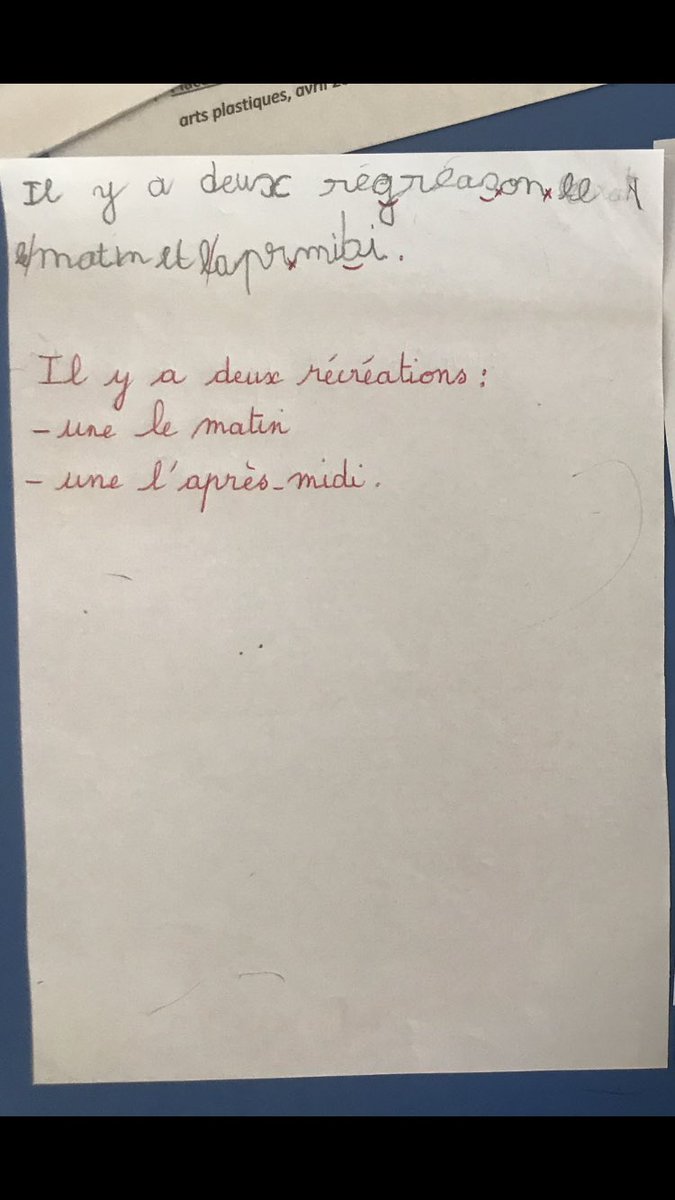 arts plastiques, avril
Il y a deux régréazon le
matin et l'aprmibi.
Il y a deux récréations :
- une le matin
- une l'après-midi.